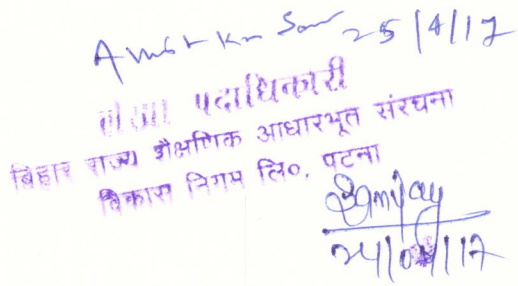 25/4/17
लेखा पदाधिकारी
बिहार राज्य शैक्षणिक आधारभूत संरचना
विकास निगम लि०, पटना
Sanjay
24/04/17